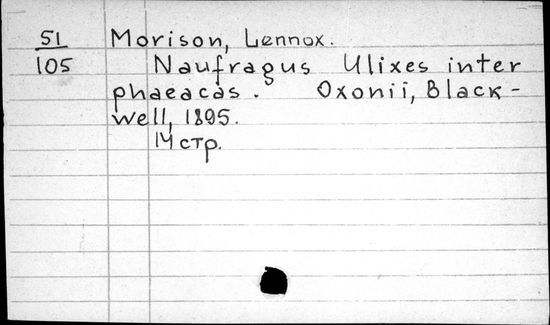 51 Morison, Lennox.
105 Naufragus Ulixes inter
phaeacas. Oxonii, Black-
well, 1895.
14 стр.